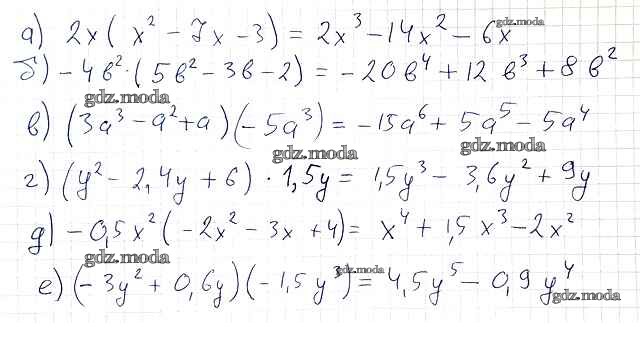 а) 2x( x² - 7x - 3) = 2x³ - 14x² - 6x
gdz.moda
б) - 4b²·(5b² - 3b - 2) = - 20b⁴ + 12b³ + 8b²
gdz.moda
в) (3a³ - a² + a)(- 5a³) = - 15a⁶ + 5a⁵ - 5a⁴
gdz.moda gdz.moda
г) (y² - 2,4y + 6)·1,5y = 1,5y³ - 3,6y² + 9y
д) - 0,5x²( - 2x² - 3x + 4) = x⁴ + 1,5x³ - 2x²
gdz.moda gdz.moda
е) (- 3y² + 0,6y)(- 1,5y³) = 4,5y⁵ - 0,9y⁴
gdz.moda